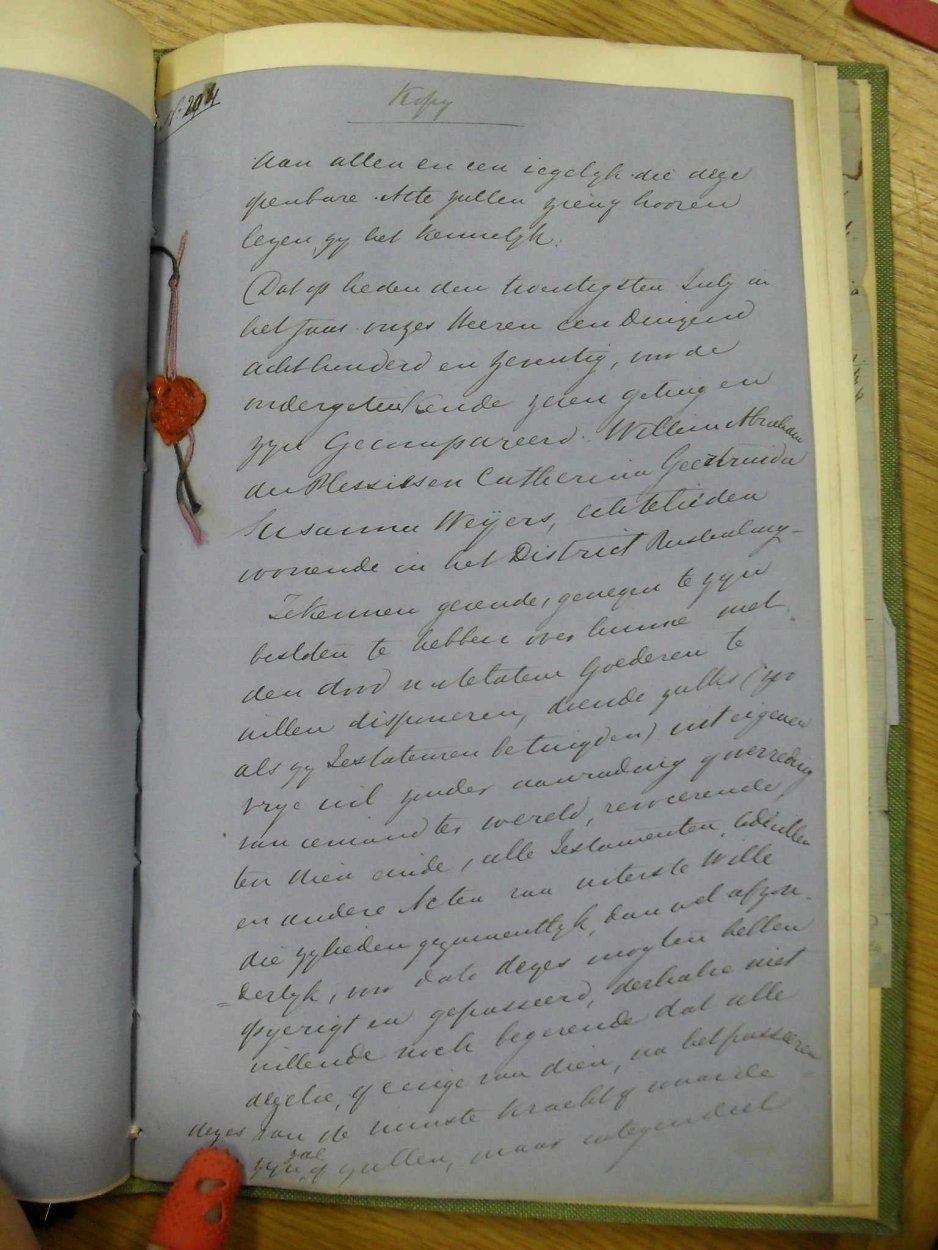 N. 294
Kopy
Aan allen en een iegelyk die deze
openbare Acte zullen zien of hooren
lezen zy het kennelyk.
Dat op heden den twentigsten July in
het Jaar onzes Heeren een Duizend
achthonderd en zeventig, voor de
ondergeteekende zeven getuigen
zyn Gecompareerd. Willem Abraham
du Plessis en Catherina Geertruida
Susanna Weyers, echtelieden
wonende in het District Rustenburg
Te kennen gevende, genegen te zyn
besloten te hebben over hunne met
den dood u te laten Goederen te
willen disponeren, doende zulks (zoo
als zy Testateuren betuigden) uit eigenen
vrye wil zonder aanrading of overreding
van iemand ter wereld, revocerende
ten dien einde, alle Testamenten, Codicillen
en andere Acten van uiterste Wille
die zylieden gezamentlyk, dan wel afzon-
=derlyk, voor dato dezes mogten hebben
opgerigt en gepasseerd, derhalve niet
willende noch begerende dat alle
dezelve, of eenige van dien, na het passeeren
dezes van de minste kracht of waarde
zyn zal of zullen, maar integendeel